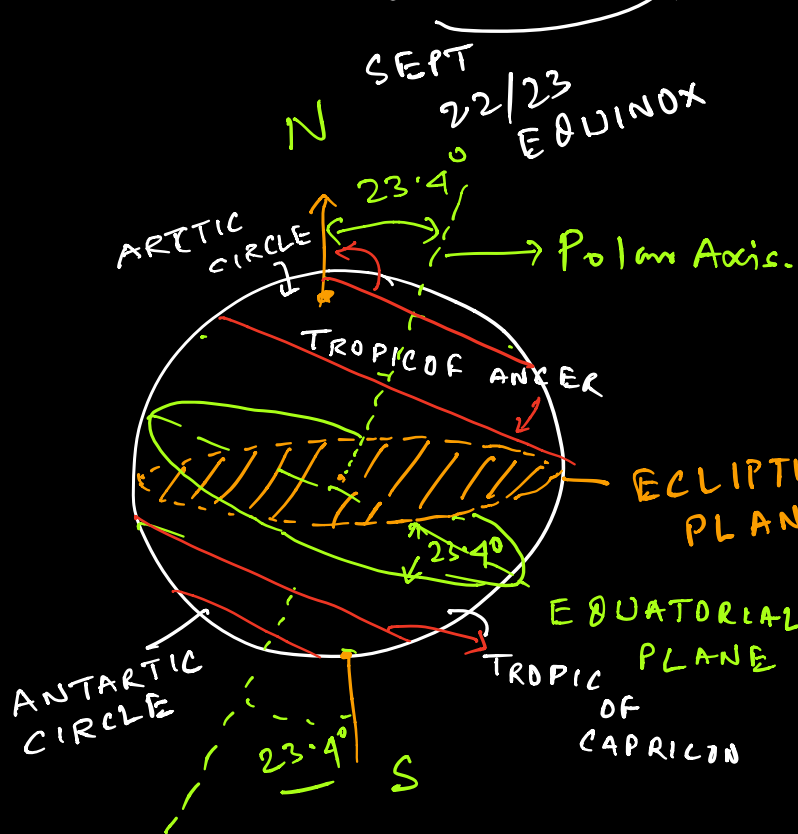 SEPT
22/23
EQUINOX
N
23.4°
ARCTIC
CIRCLE
Polar Axis.
TROPIC OF ANCER
ECLIPTI
PLAN
23.4°
EQUATORIAL
PLANE
ANTARTIC
CIRCLE
TROPIC
OF
CAPRICON
23.4°
S